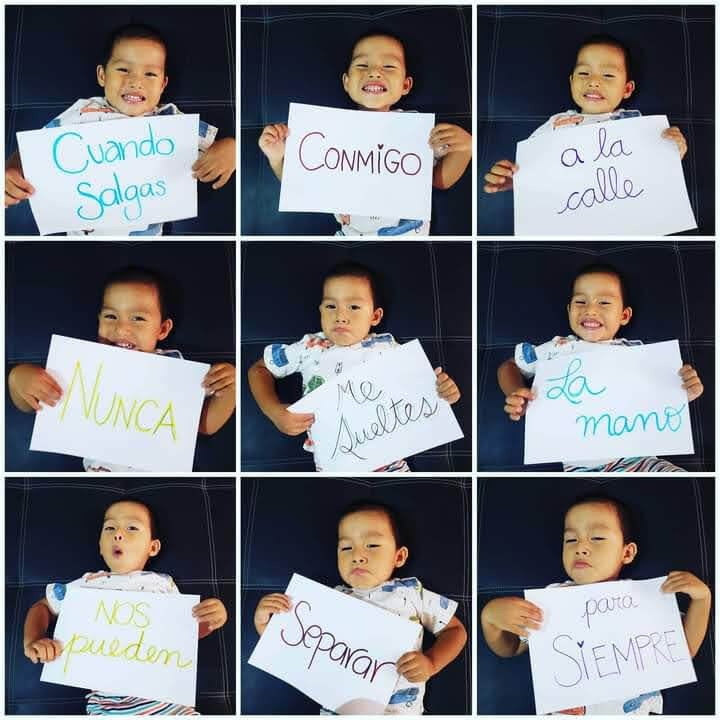 Cuando
Salgas
CONMiGO
a la
calle
NUNCA
Me
Sueltes
La
mano
NOS
pueden
Separar
para
SiEMPRE